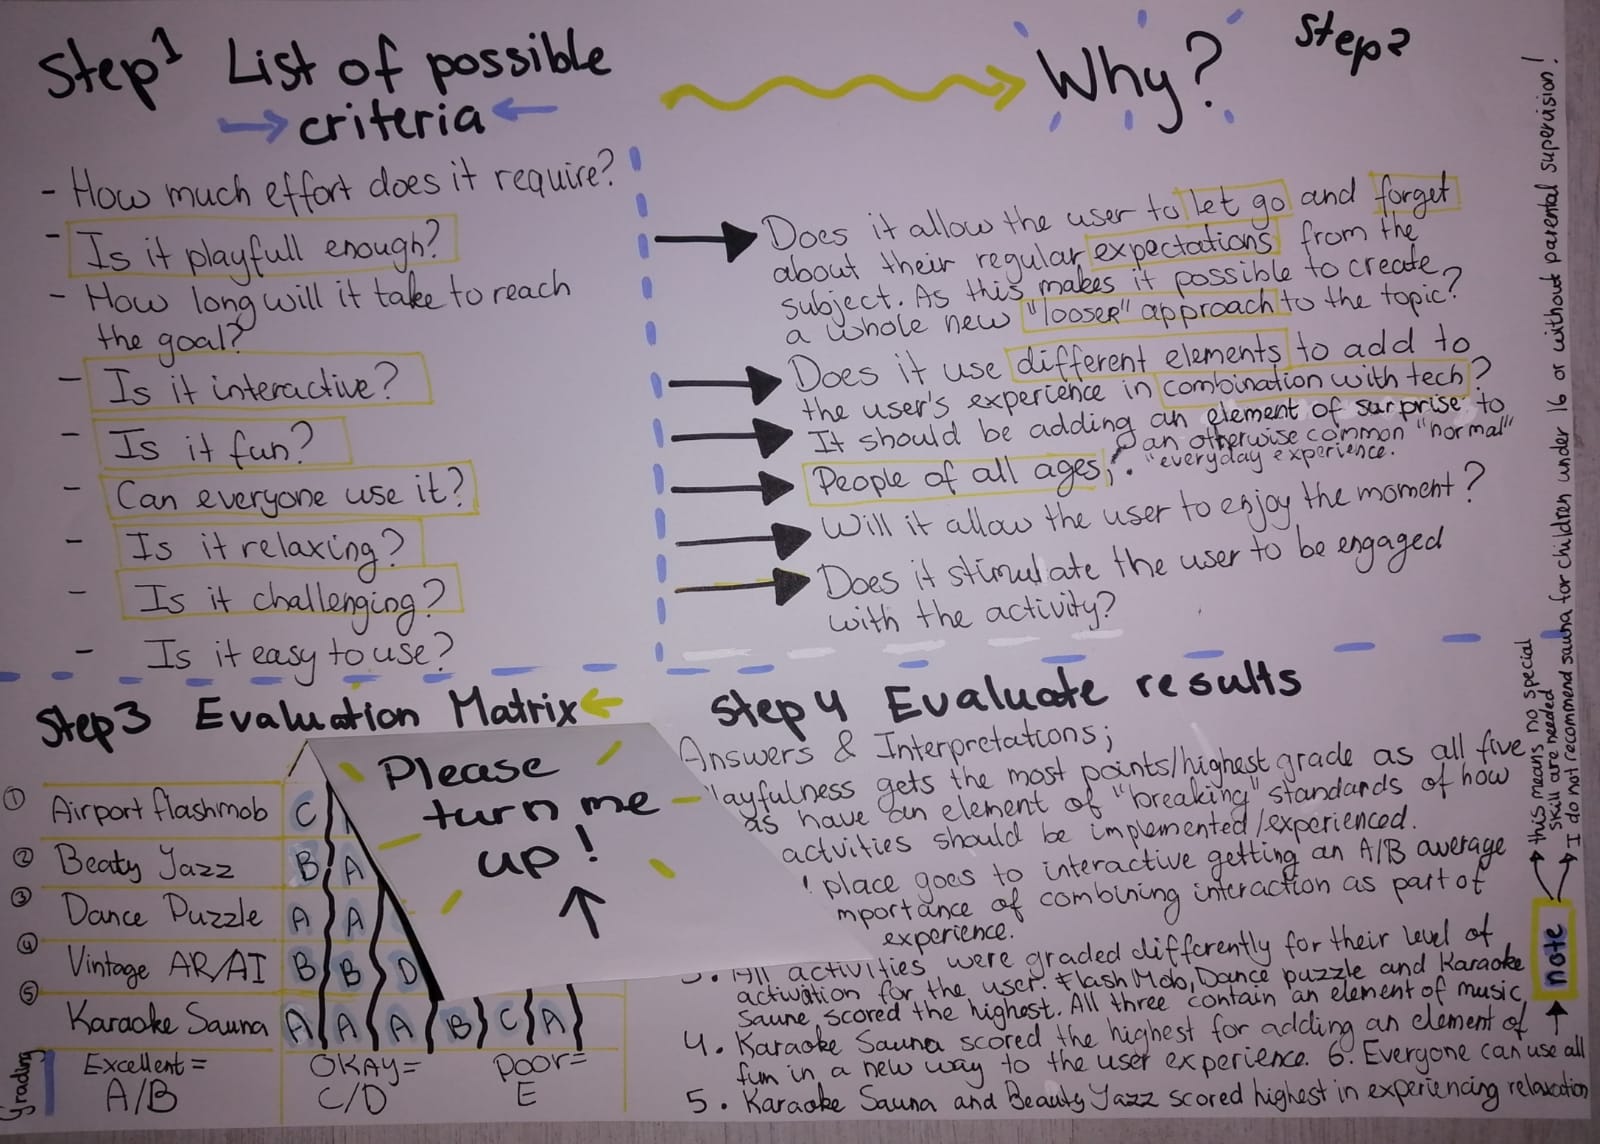 Step 1 List of possible
criteria
- How much effort does it require?
- Is it playfull enough?
- How long will it take to reach
the goal?
- Is it interactive?
- Is it fun?
- Can everyone use it?
- Is it relaxing?
- Is it challenging?
- Is it easy to use?
Why? Step 2
Does it allow the user to let go and forget
about their regular expectations from the
subject. As this makes it possible to create
a whole new "looser" approach to the topic?
Does it use different elements to add to
the user's experience in combination with tech?
It should be adding an element of surprise to
an otherwise common "normal"
"everyday experience.
People of all ages;.
Will it allow the user to enjoy the moment?
Does it stimulate the user to be engaged
with the activity?
Step 3 Evaluation Matrix
① Airport flashmob C
② Beaty Jazz B A
③ Dance Puzzle A A
④ Vintage AR/AI B B D
⑤ Karaoke Sauna A A A B C A
Grading
Excellent =
A/B
OKAY=
C/D
Poor=
E
Please
turn me
up!
Step 4 Evaluate results
Answers & Interpretations;
layfulness gets the most points/highest grade as all five
as have an element of "breaking" standards of how
actvities should be implemented/experienced.
place goes to interactive getting an A/B average
mportance of combining interaction as part of
experience.
3. All activities were graded differently for their level of
activation for the user. Flash Mob, Dance puzzle and Karaoke
Saune scored the highest. All three contain an element of music
4. Karaoke Sauna scored the highest for adding an element of
fun in a new way to the user experience. 6. Everyone can use all
5. Karaoke Sauna and Beauty Jazz scored highest in experiencing relaxation
note
this means no special
skill are needed
I do not recommend sauna for children under 16 or without parental supervision!